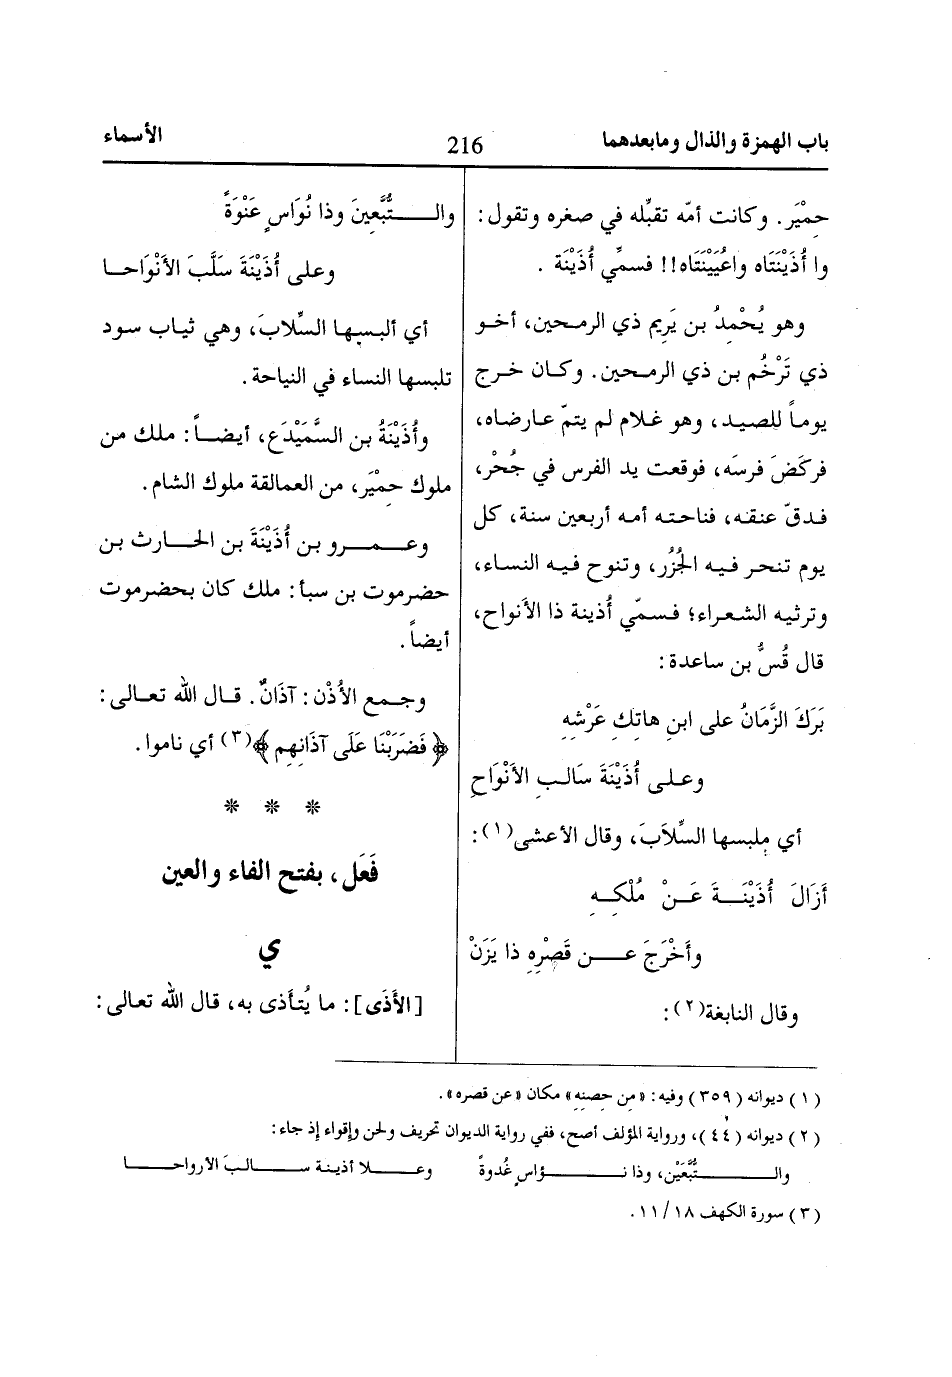 باب الهمزة والذال ومابعدهما
216
الأسماء
حِمْيَر. وكانت أمّه تقبِّله في صغره وتقول:
وا أُذَيْنَتَاه واعُيَيْنَتَاه!! فسمِّي أُذَيْنَة .
وهو يُحْمِدُ بن يَرِيم ذي الرمحين، أخو
ذي تَرْخُم بن ذي الرمحين. وكان خرج
يوماً للصيد، وهو غلام لم يتمّ عارضاه،
فركَضَ فرسَه، فوقعت يد الفرس في جُحْر،
فدقّ عنقه، فناحته أمه أربعين سنة، كل
يوم تنحر فيه الجُزُر، وتنوح فيه النساء،
وترثيه الشعراء؛ فسمّي أُذينة ذا الأَنواح،
قال قُسُّ بن ساعدة:
بَرَكَ الزَّمَانُ على ابنِ هاتكِ عَرْشِهِ
وعلى أُذَيْنَةَ سَالبِ الأَنْوَاحِ
أي مِلبسها السِّلاَبَ، وقال الأعشى(١):
أَزَالَ أُذَيْنَةَ عَنْ مُلْكِهِ
وأَخْرَجَ عن قَصْرِهِ ذا يَزَنْ
وقال النابغة(٢):
والتُّبَّعِينَ وذا نُوَاسٍ عَنْوَةً
وعلى أُذَيْنَةَ سَلَّبَ الأَنْوَاحا
أي ألبسها السِّلابَ، وهي ثياب سود
تلبسها النساء في النياحة.
وأُذَيْنَةُ بن السَّمَيْدَع، أيضاً: ملك من
ملوك حِمْيَر، من العمالقة ملوك الشام.
وعمرو بن أُذَيْنَة بن الحارث بن
حضرموت بن سبأ: ملك كان بحضرموت
أيضاً.
وجمع الأُذْن: آذَانٌ. قال الله تعالى:
﴿ فَضَرَبْنَا عَلَى آذَانِهِم ﴾(٣) أي ناموا.
* * *
فَعَل، بفتح الفاء والعين
ي
[الأَذَى]: ما يُتأذى به، قال الله تعالى:
(١) ديوانه (٣٥٩) وفيه: «من حِصنِه» مكان «عن قصره».
(٢) ديوانه (٤٤)، ورواية المؤلف أصح، ففي رواية الديوان تحريف ولحن وإقواء إذ جاء:
والتُّبَّعَيْن، وذا نؤاسٍ غُدوةً وعلا أذينة سالبَ الأرواحا
(٣) سورة الكهف ١٨/ ١١.